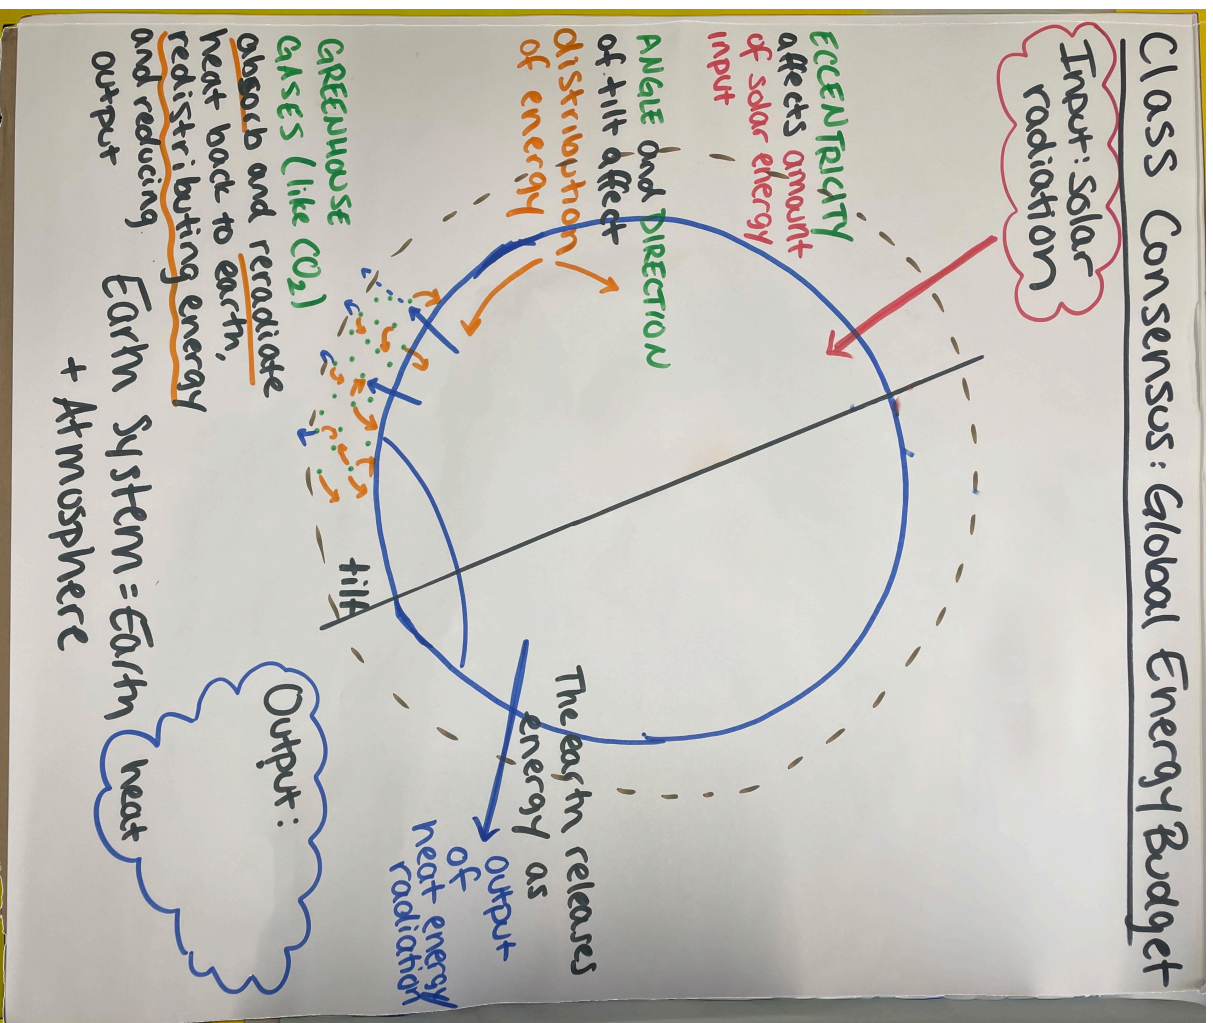 Class Consensus: Global Energy Budget
Input: Solar
radiation
ECCENTRICITY
affects amount
of solar energy
input
ANGLE and DIRECTION
of tilt affect
distribution
of energy
GREENHOUSE
GASES (like CO₂)
absorb and reradiate
heat back to earth,
redistributing energy
and reducing
output
tilt
The earth releases
energy as
output
of
heat energy
radiation
Output:
heat
Earth System = Earth
+ Atmosphere